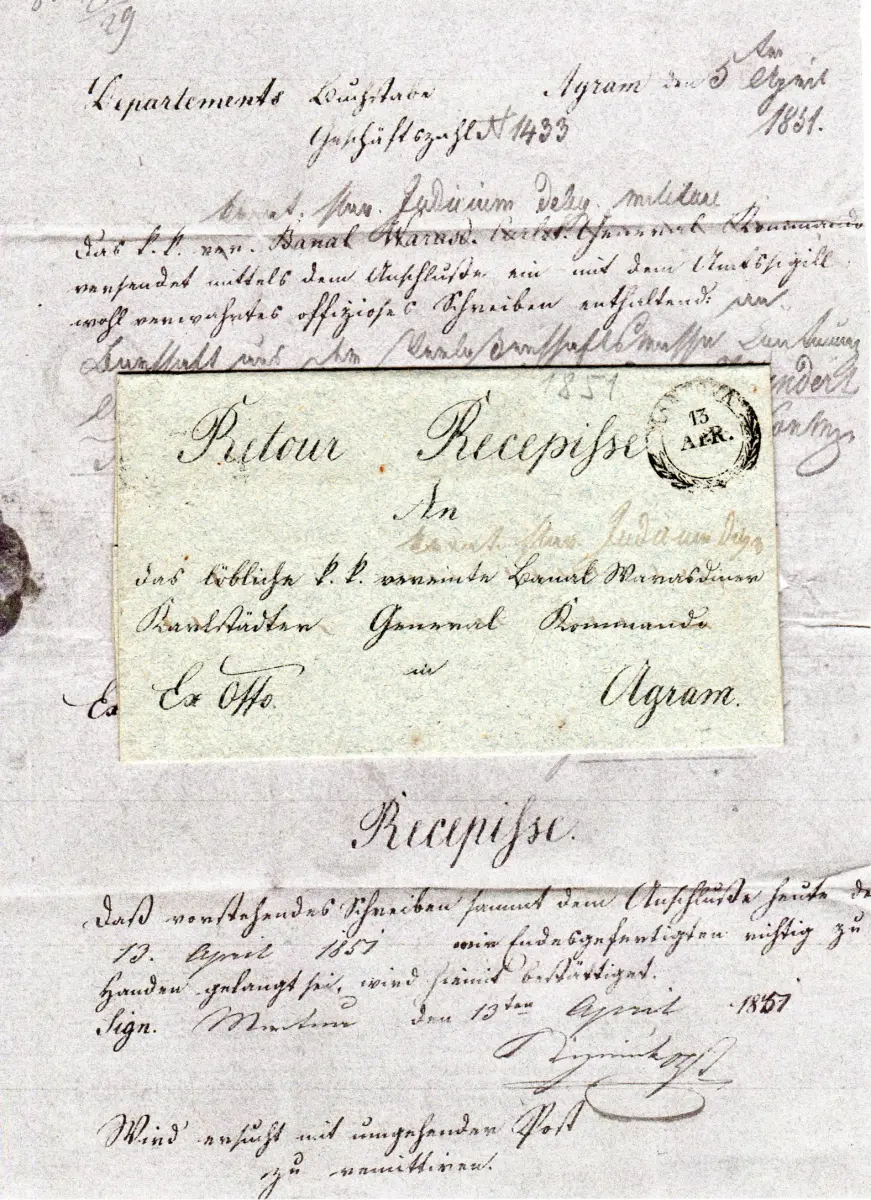 29
Departements Buchstabe Agram den 5ten April
Geschäftszahl N 1433 1851.
Judicium deleg. militare
Das k. k. ver. Banal Warasd. Carlst. General Kommando
versendet mittels dem Anschluße ein mit dem Amtssigill
wohl verwahrtes offizioses Schreiben enthaltend: an
aus der Verlassenschaftsmasse
1851
Retour Recepisse
13
APR.
An
Jud
das löbliche k. k. vereinte Banal Warasdiner
Karlstädter General Kommando
in
Ex Offo. Agram.
Ex
Recepisse.
Daß vorstehendes Schreiben sammt dem Anschluße heute de
13. April 1851 mir Endesgefertigten richtig zu
Handen gelangt sei, wird hiemit bestättiget.
Sign. den 13ten April 1851
Wird ersucht mit umgehender Post
zu remittiren.